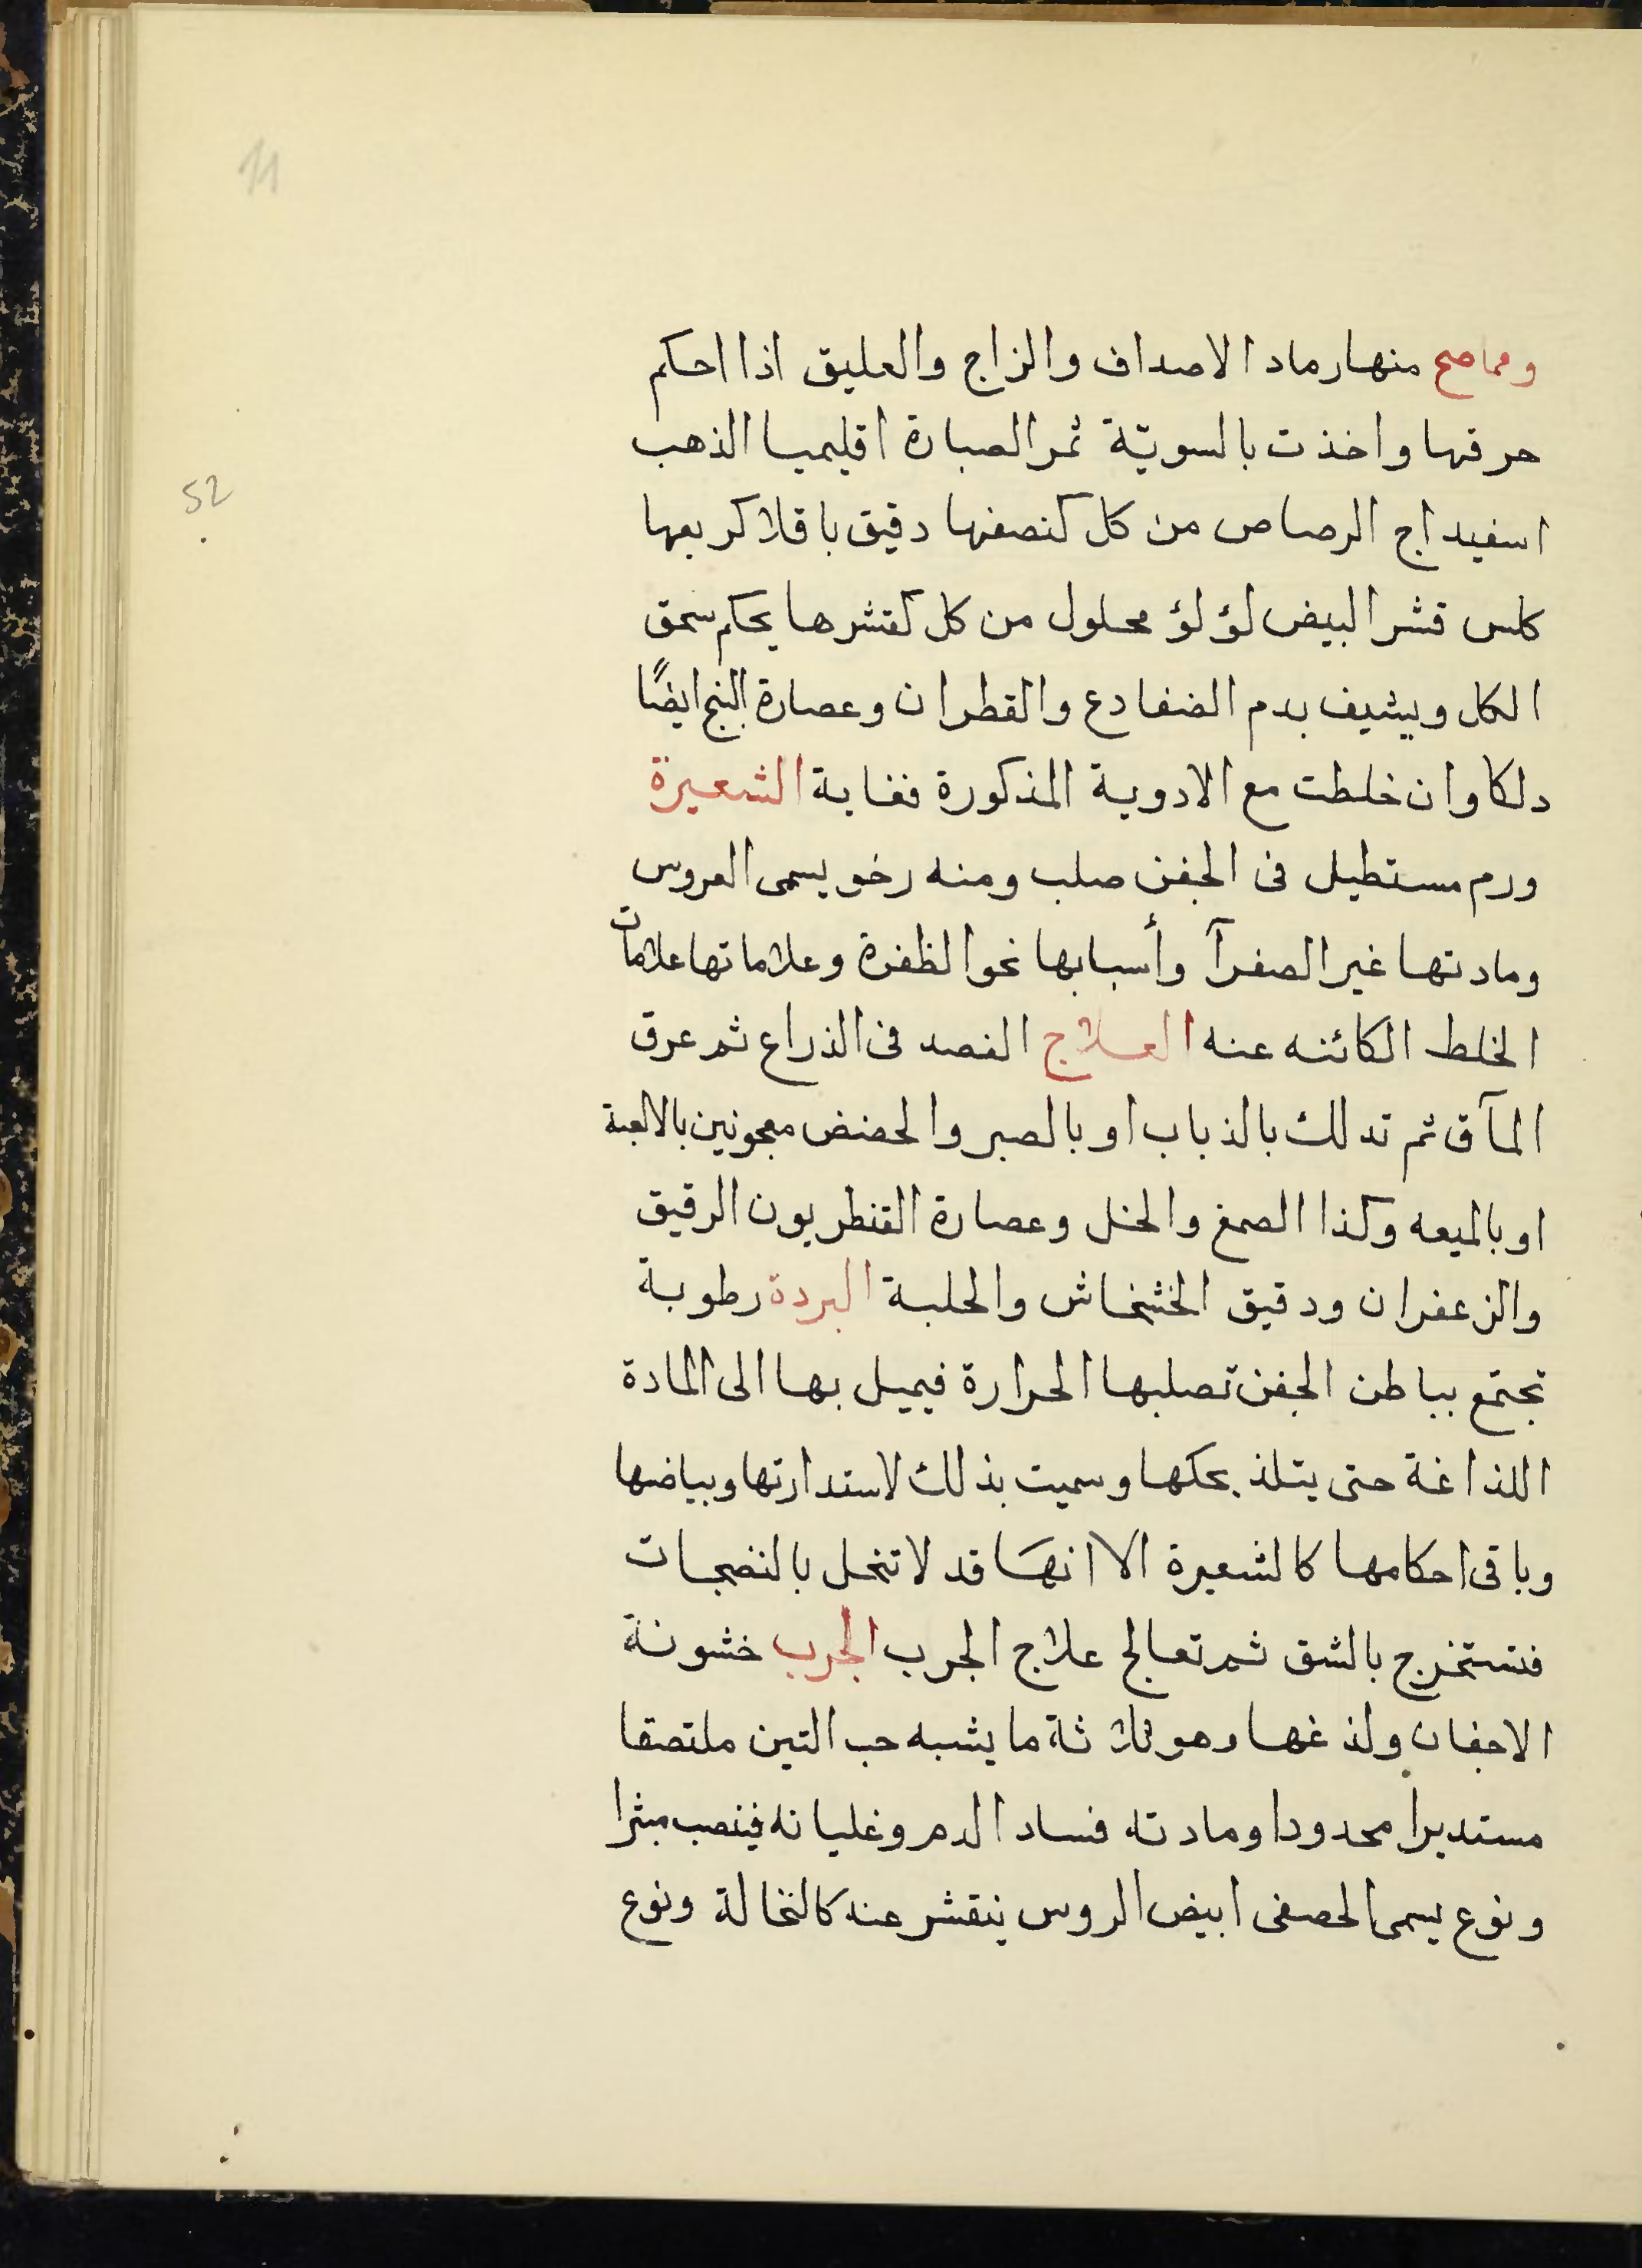 11
ومما صح منها رماد الاصداف والزاج والعليق اذا احكم
حرقها واخذت بالسويّة ثمر الصبارة اقليميا الذهب
52
اسفيداج الرصاص من كل كنصفها دقيق باقلا كربعها
كلس قشر البيض لؤلؤ محلول من كل كقشرها يحكم سحق
الكل ويشيف بدم الضفادع والقطران وعصارة البنج ايضًا
دلكا وان خلطت مع الادوية المذكورة فغاية الشعيرة
ورم مستطيل فى الجفن صلب ومنه رخو يسمى العروس
ومادتها غير الصفرآ وأسبابها نحو الظفرة وعلاماتها علامات
الخلط الكائنه عنه العلاج الفصد فى الذراع ثم عرق
المآق ثم تدلك بالذباب او بالصبر والحضض معجونين بالالعبة
او بالميعه وكذا الصمغ والخل وعصارة القنطريون الرقيق
والزعفران ودقيق الخشخاش والحلبة البردة رطوبة
تجتمع بباطن الجفن تصلبها الحرارة فيميل بها الى المادة
اللذاغة حتى يتلذ بحكها وسميت بذلك لاستدارتها وبياضها
وباقى احكامها كالشعيرة الا انهَا قد لا تنحل بالنضجات
فتستخرج بالشق ثم تعالج علاج الجرب الجرب خشونة
الاجفان ولذغها وهو ثلاثة ما يشبه حب التين ملتصقا
مستديرا محدودا ومادته فساد الدم وغليانه فينصب مبثرا
ونوع يسمى الحصفى ابيض الروس ينقشر عنه كالنخالة ونوع